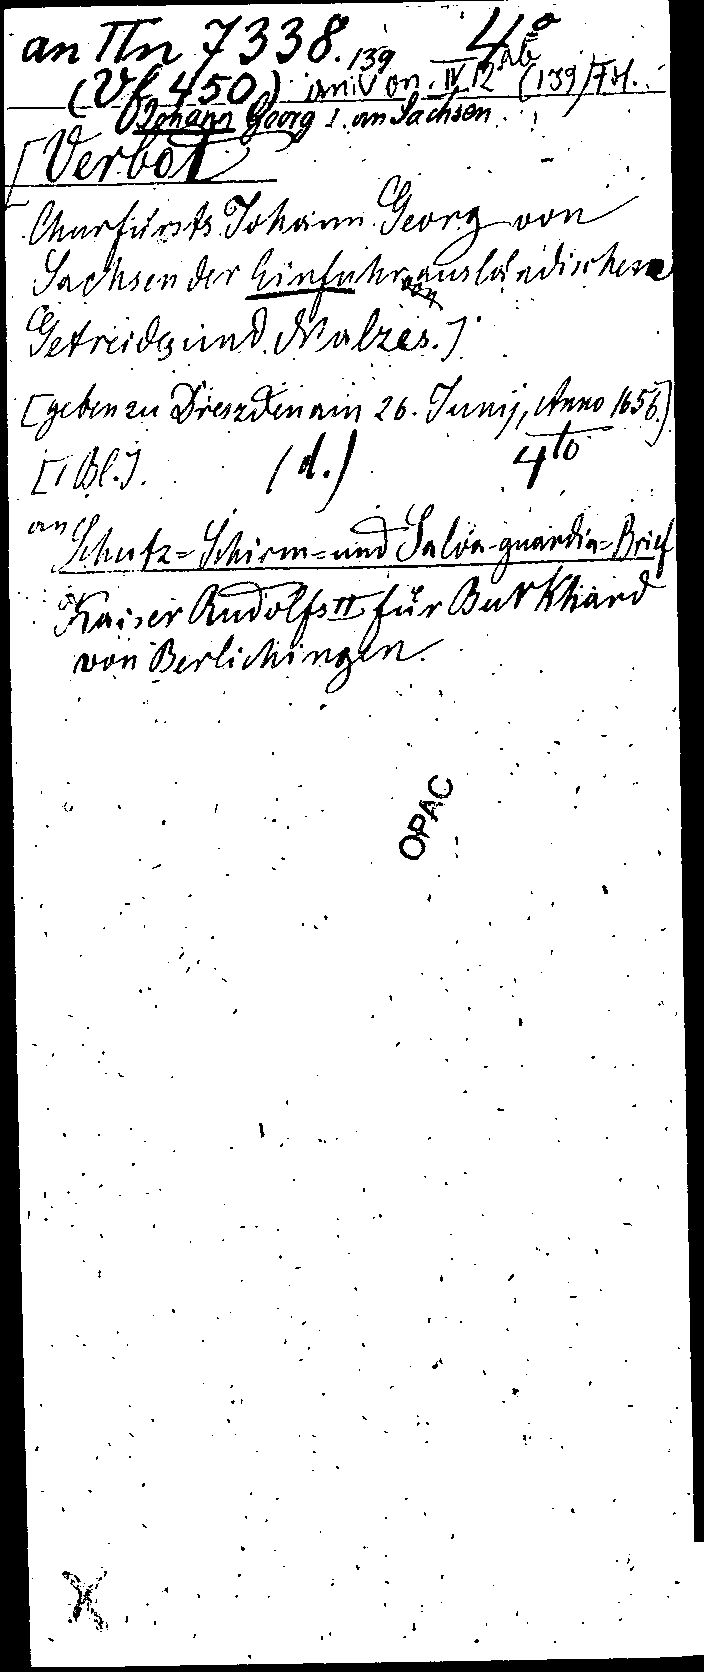 an IIn 7338. 139 4°
(Vf 450) an: V on. IV 12 ab (139) FM.
Johann Georg I. an Sachsen
[Verbot
Churfürsts Johann Georg von
Sachsen der Einfuhr von ausländischen
Getreides und Malzes.]
[geben zu Dreszden am 26. Junij, Anno 1656.]
[1 Bl.]. (d.) 4to
an Schutz=Schirm=und Salva-guardia=Brief
Kaiser Rudolfs II für Burkhard
von Berlichingen.
OPAC
X